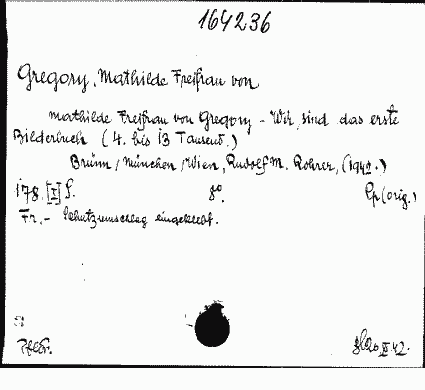 164236
Gregory, Mathilde Freifrau von
Mathilde Freifrau von Gregory - Wir sind das erste
Bilderbuch (4. bis 13 Tausend.)
Brünn/München/Wien, Rudolf M. Rohrer, (1942.)
178 [I] S. 8º. Lp (orig.)
Fr.- Schutzumschlag eingeklebt.